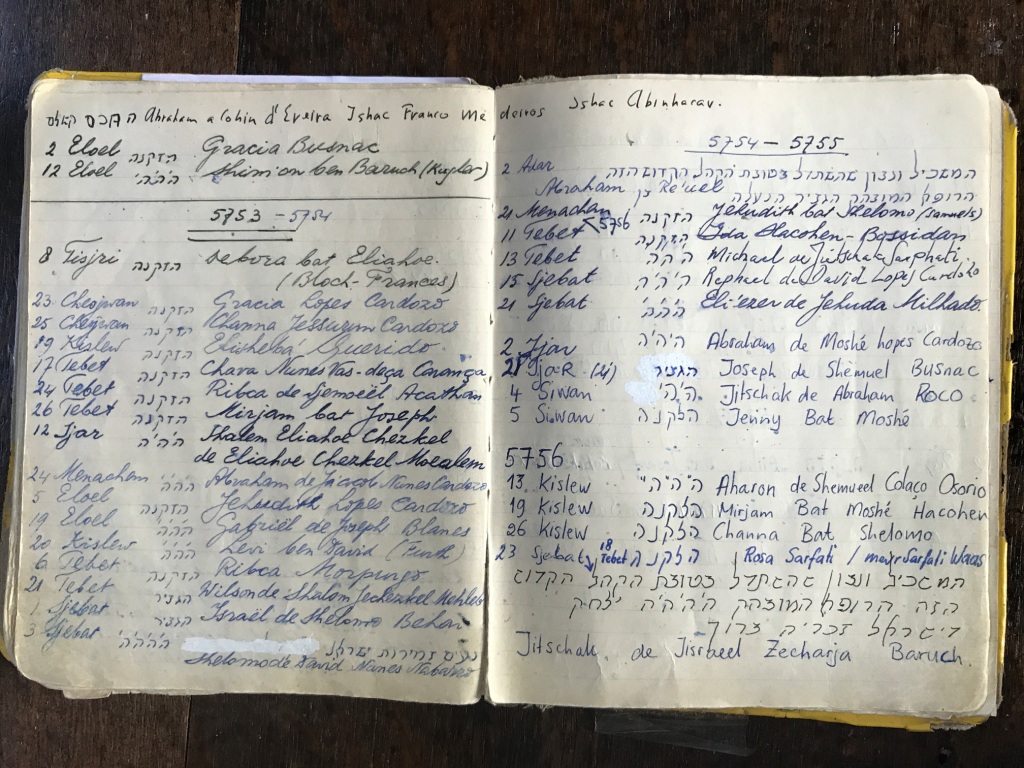 Abraham a Cohin d'Eveira Ishac Franco Me deiros Ishac Abinharav.
2 Eloel הזקנה Gracia Busnac
12 Eloel ה'ה'ה' Shim'on ben Baruch (Kugler)
5753 - 5754
8 Tisjri הזקנה Debora bat Eliahoe.
(Bloch-Frances)
23 Chesjwan הזקנה Gracia Lopes Cardozo
25 Chesjwan הזקנה Channa Jessurun Cardozo
19 Kislew הזקנה Elisheba Querido.
17 Tebet הזקנה Chava Nunes Vas
24 Tebet הזקנה Ribca de Sjemoeël Acathan
26 Tebet הזקנה Mirjam bat Joseph
12 Ijar ה'ה'ה Shalem Eliahoe Chezkel
de Eliahoe Chezkel Moealem
24 Menachem ההה' Abraham de Jacob Nunes Cardozo
5 Eloel הזקנה Jehudith Lopes Cardozo
19 Eloel ההה' Gabriël de Joseph Blanes
20 Kislew ההה' Levi ben David
6 Tebet הזקנה Ribca Morpurgo
21 Tebet הגביר Wilson de Shalom Jechezkel
1 Sjebat הגביר Israël de Shelomo Behar
3 Sjebat ה'ה'ה'ה' נעים זמירות ישראל
Shelomo de David Nunes Nabarro
5754 - 5755
2 Adar המשכיל ונבון שהשתדל בטובת הקהל הקדוש הזה
Abraham בן Re'uel הרופא המובהק הגביר הנעלה
21 Menachem הזקנה Jehudith bat Shelomo (Samuels)
11 Tebet 5756 הזקנה Ida Hacohen-Bossidan
13 Tebet ה'ה'ה Michael de Jitschak Sarphati.
15 Sjebat ה'ה'ה' Raphael de David Lopes Cardozo
21 Sjebat ההה' Eli'ezer de Jehuda Milhado.
2 Ijar ה'ה'ה Abraham de Moshé Lopes Cardozo
Ijar הגביר Joseph de Shemuel Busnac
4 Siwan ה'ה' Jitschak de Abraham Roco
5 Siwan הזקנה Jenny Bat Moshé
5756
13 Kislew ה'ה'ה' Aharon de Shemueel Colaço Osorio
19 Kislew הזקנה Mirjam Bat Moshé Hacohen
26 Kislew הזקנה Channa Bat Shelomo
23 Sjebat 18 Tebet הזקנה Rosa Sarfati / Sarfati Waas
המשכיל ונבון שהשתדל בטובת הקהל הקדוש
הזה הרופא המובהק ה'ה'ה'ה יצחק
דישראל זכריה ברוך
Jitschak de Jisraeel Zecharja Baruch.